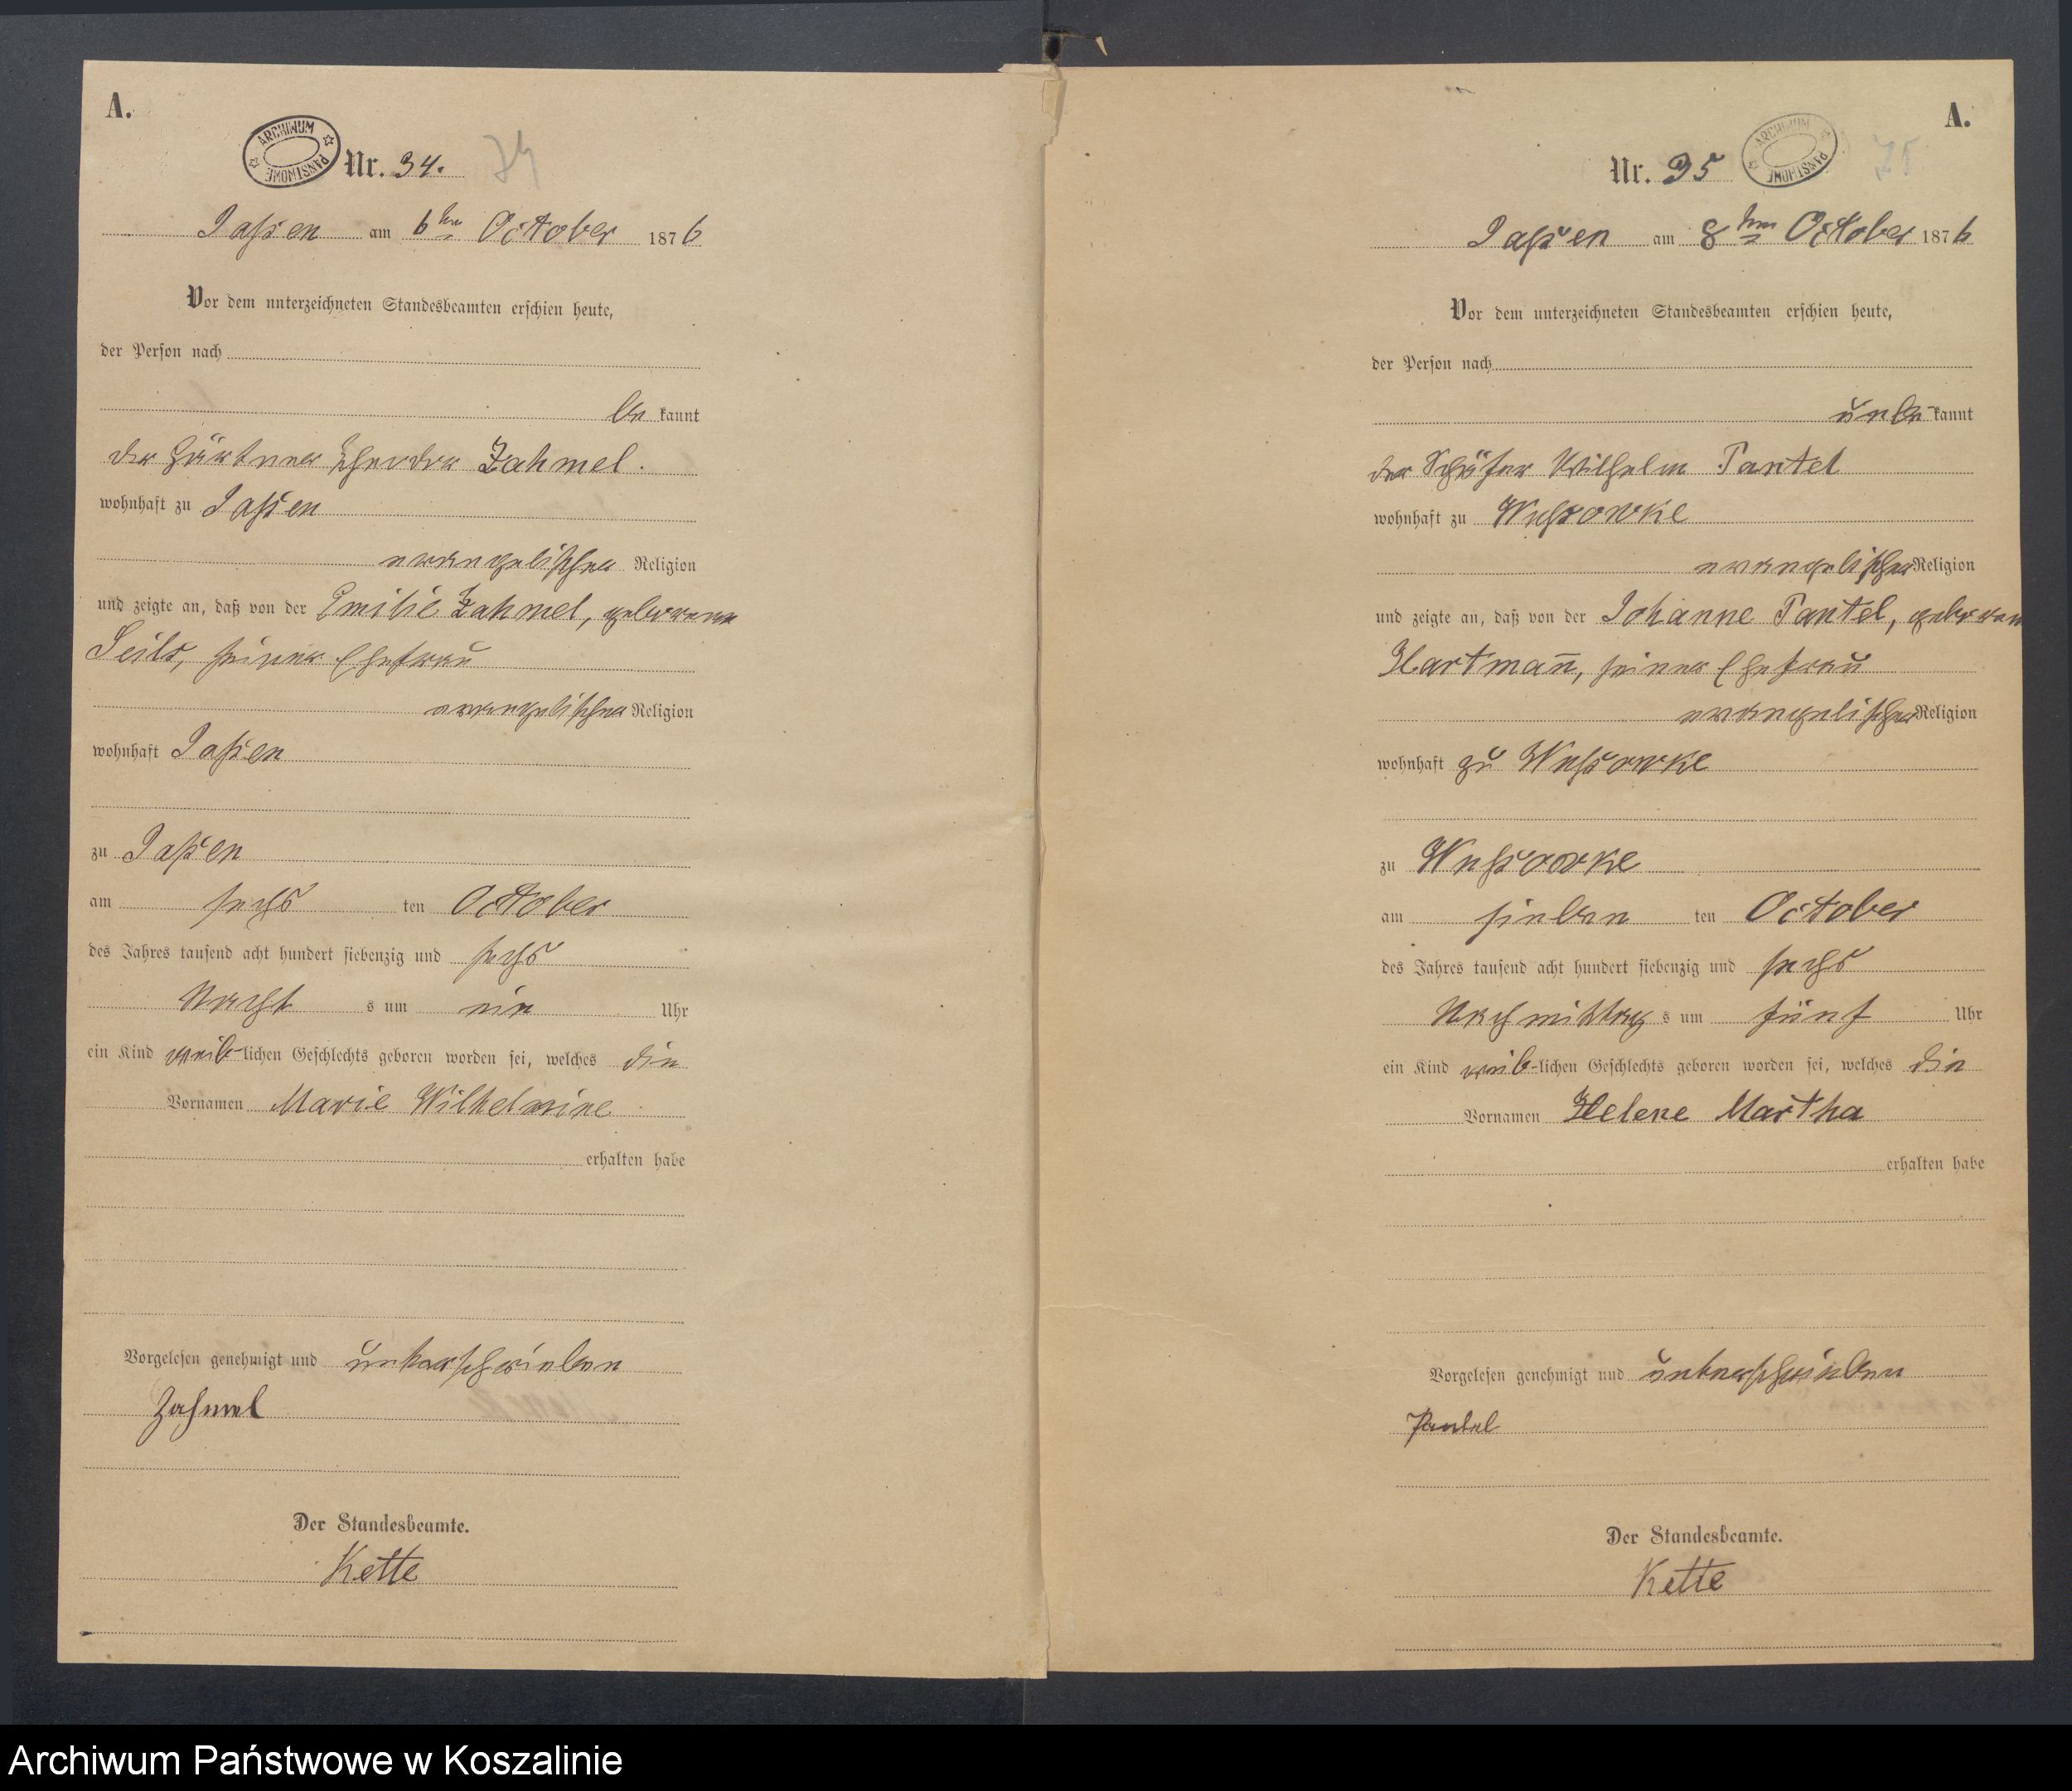 A.
ARCHIWUM PAŃSTWOWE
Nr. 34. 34
Jassen am 6ten October 1876
Vor dem unterzeichneten Standesbeamten erschien heute,
der Person nach
be kannt
der Gärtner Theodor Zahmel.
wohnhaft zu Jassen
evangelischer Religion
und zeigte an, daß von der Emilie Zahmel, geborene
seiner Ehefrau
evangelischer Religion
wohnhaft Jassen
zu Jassen
am sechs ten October
des Jahres tausend acht hundert siebenzig und sechs
Nacht s um ein Uhr
ein Kind weib-lichen Geschlechts geboren worden sei, welches die
Vornamen Marie Wilhelmine
erhalten habe
Vorgelesen genehmigt und unterschrieben
Zahmel
Der Standesbeamte.
Kette
A.
Nr. 35 35
ARCHIWUM PAŃSTWOWE
Jassen am 8ten October 1876
Vor dem unterzeichneten Standesbeamten erschien heute,
der Person nach
unbe-kannt
der Schäfer Wilhelm Pantel
wohnhaft zu Wussowke
evangelischer Religion
und zeigte an, daß von der Johanne Pantel, geboren
Hartmañ, seiner Ehefrau
evangelischer Religion
wohnhaft zu Wussowke
zu Wussowke
am sieben ten October
des Jahres tausend acht hundert siebenzig und sechs
Nachmittag s um fünf Uhr
ein Kind weib-lichen Geschlechts geboren worden sei, welches die
Vornamen Helene Martha
erhalten habe
Vorgelesen genehmigt und unterschrieben
Pantel
Der Standesbeamte.
Kette
Archiwum Państwowe w Koszalinie